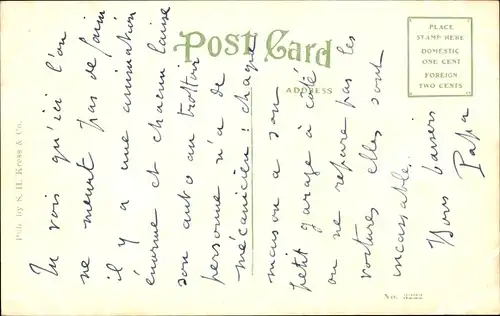 Post Card
ADDRESS
PLACE
STAMP HERE
DOMESTIC
ONE CENT
FOREIGN
TWO CENTS
Pub. by S. H. Kress & Co.
No. 3222
Tu vois qu'ici l'on
ne meurt pas de faim
il y a une animation
énorme et chacun laisse
son auto au trottoir
personne n'a de
mécanicien : chaque
maison a son
petit garage à côté
on ne répare pas les
voitures elles sont
incassables..
Bons baisers
Papa